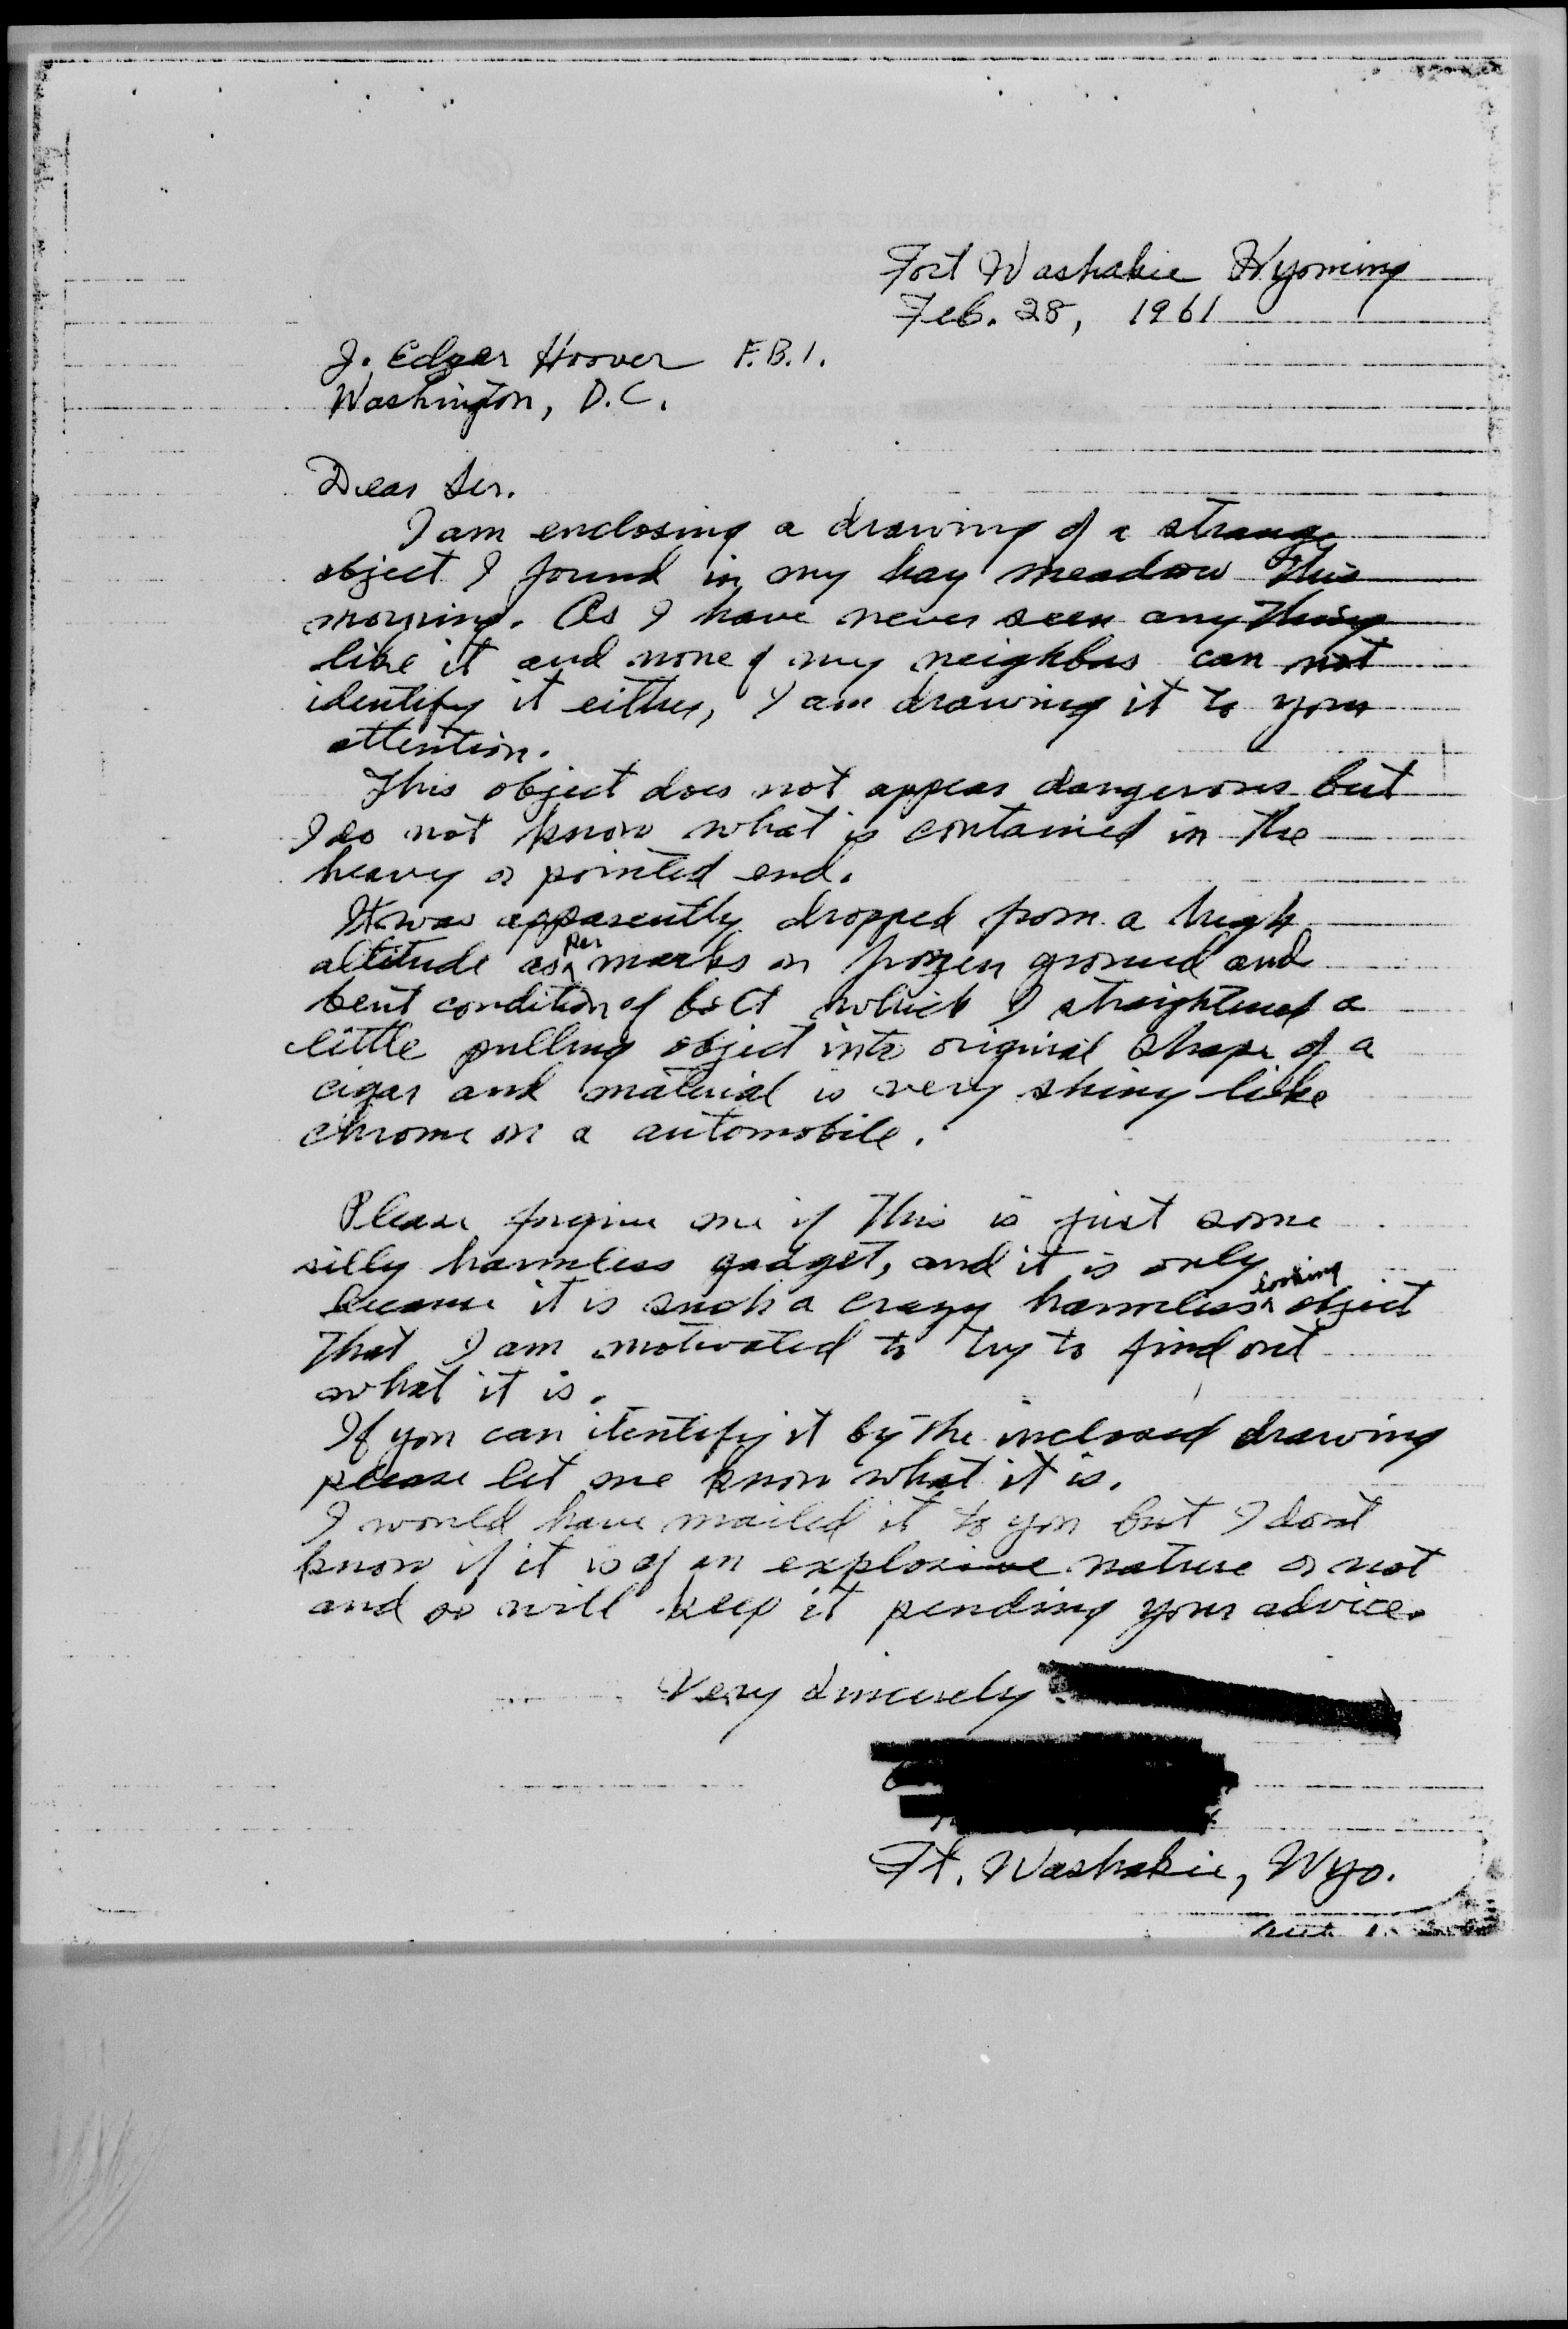 Fort Washakie Wyoming
Feb. 28, 1961
J. Edgar Hoover F.B.I.
Washington, D.C.
Dear Sir.
I am enclosing a drawing of a strange
object I found in my hay meadow this
morning. As I have never seen anything
like it and none of my neighbors can not
identify it either, I am drawing it to your
attention.
This object does not appear dangerous but
I do not know what is contained in the
heavy or pointed end.
It was apparently dropped from a high
altitude as per marks on frozen ground and
bent condition of bolt which I straightened a
little pulling object into original shape of a
cigar and material is very shiny like
chrome on a automobile.
Please forgive me if this is just some
silly harmless gadget, and it is only
because it is such a crazy harmless looking object
that I am motivated to try to find out
what it is.
If you can itentify it by the inclosed drawing
please let me know what it is.
I would have mailed it to you but I don't
know if it is of an explosive nature or not
and so will keep it pending your advice.
Very Sincerely
Ft. Washakie, Wyo.